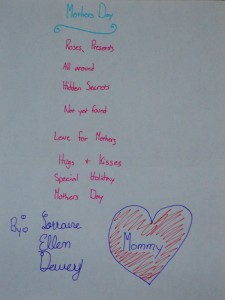 Mothers Day
Roses, Presents
All around
Hidden Secrets
Not yet found
Love for Mothers
Hugs + Kisses
Special Holiday
Mothers Day
By: Lorraine
Ellen
Dewey
Mommy